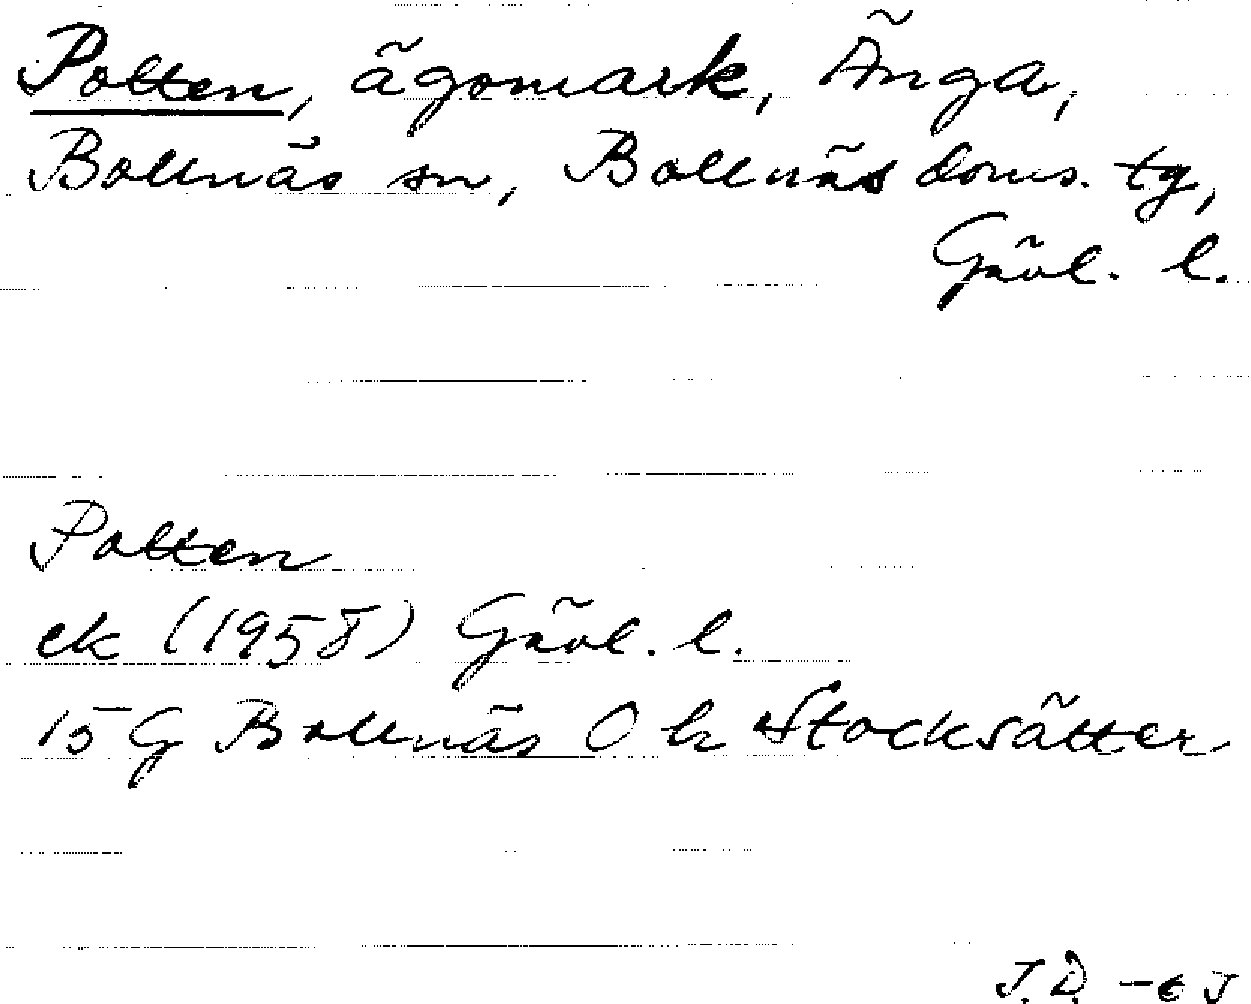 Potten, ägomark, Änga,
Bollnäs sn, Bollnäs doms. tg,
Gävl. l.
Potten
ek (1958) Gävl. l.
15 G Bollnäs O h Stocksätter
J.D.